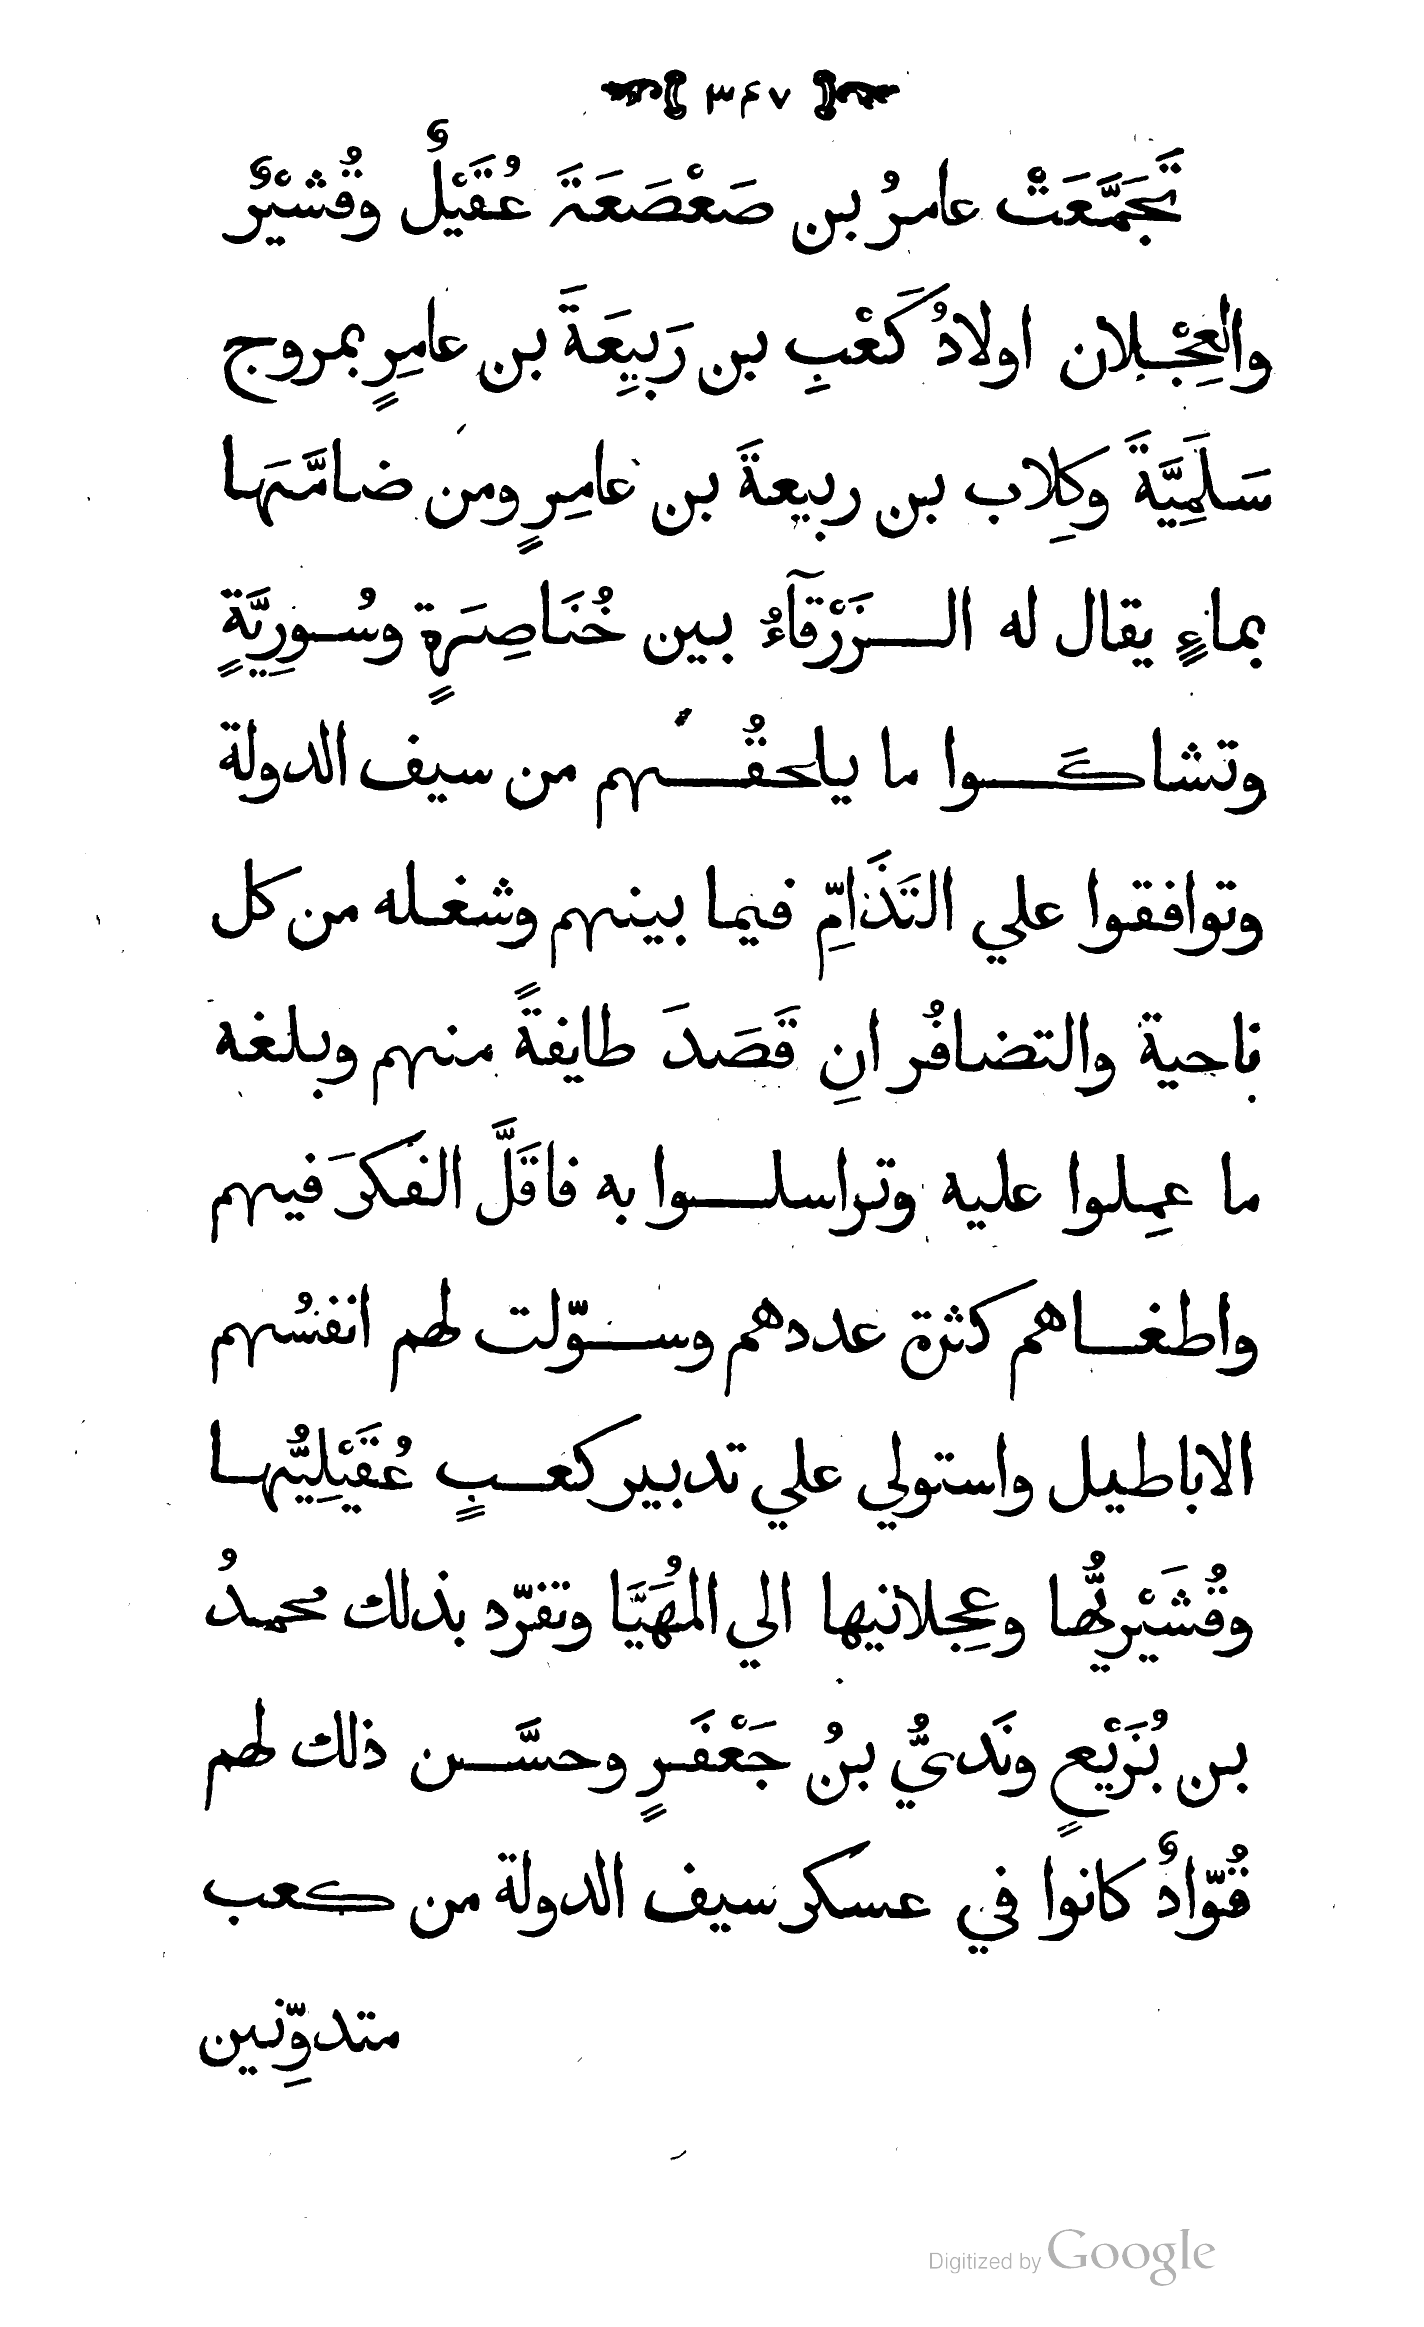 ٣٤٧
تَجَمَّعَتْ عامرُ بن صَعْصَعَةَ عُقَيْلٌ وقُشَيْرٌ
والعِجْلان اولادُ كَعْبِ بن رَبِيعَةَ بن عامِرٍ بمروج
سَلَمِيَّةَ وكِلاب بن ربيعةَ بن عامِرٍ ومن ضامَّهَا
بماءٍ يقال له الزَرْقآءُ بين خُنَاصِرَةٍ وسُورِيَّةٍ
وتشاكَوا ما يلحقُهم من سيف الدولة
وتوافقوا علي التَذَامِّ فيما بينهم وشغله من كل
ناحية والتضافُر انِ قَصَدَ طايفةً منهم وبلغه
ما عمِلوا عليه وتراسلوا به فاقَلَّ الفكرَ فيهم
واطغاهم كثرة عددهم وسوّلت لهم انفسُهم
الاباطيل واستولي علي تدبير كعبٍ عُقَيْلِيُّها
وقُشَيْرِيُّها وعِجلانيها الي المُهَيَّا وتفرّد بذلك محمدُ
بن بُزَيْعٍ ونَديُّ بنُ جَعْفَرٍ وحسَّن ذلك لهم
قُوّادٌ كانوا في عسكر سيف الدولة من كعب
متدوِّنين
Digitized by Google